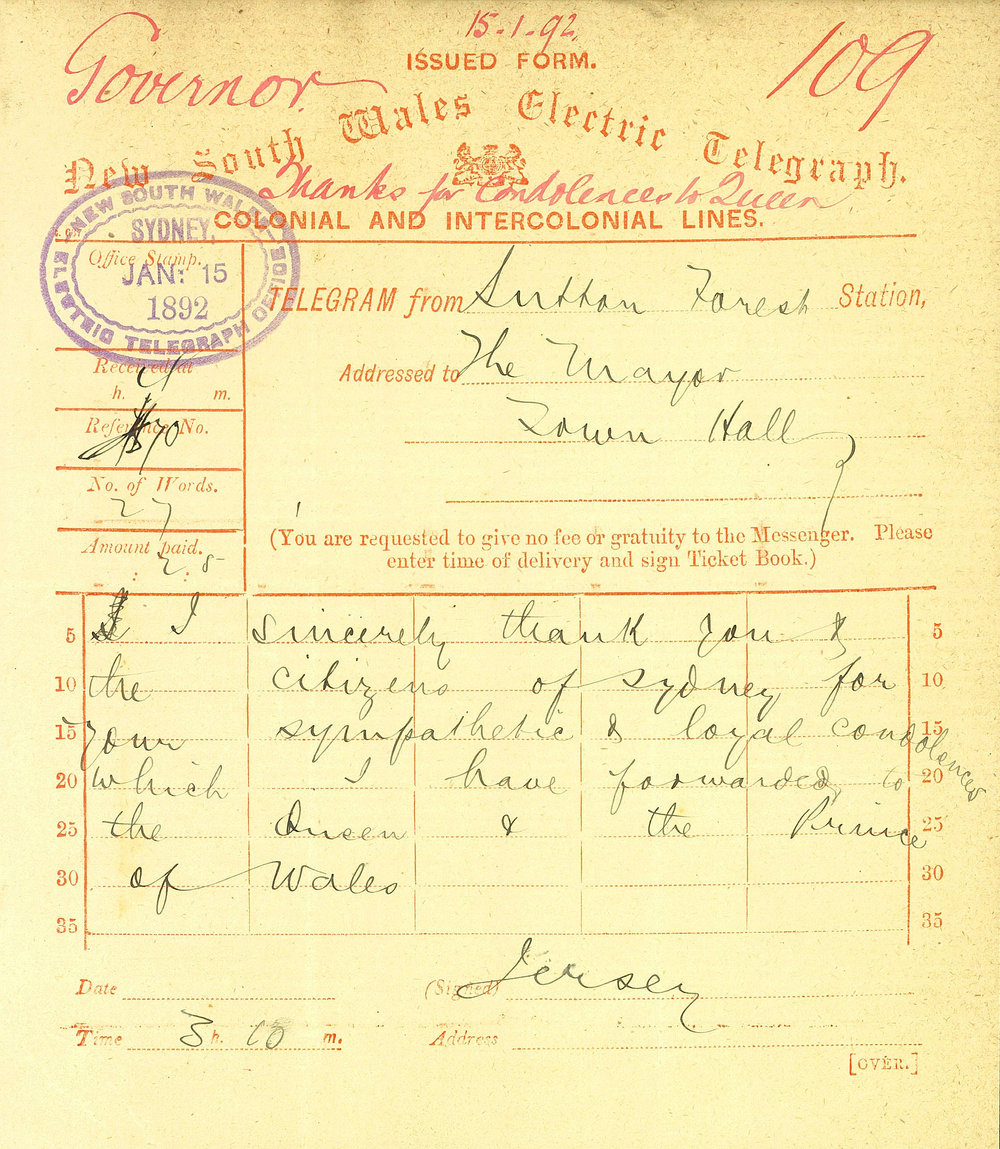 15.1.92
Governor
ISSUED FORM.
109
New South Wales Electric Telegraph.
Thanks for Condolences to Queen
COLONIAL AND INTERCOLONIAL LINES.
NEW SOUTH WALES
SYDNEY.
JAN: 15
1892
ELECTRIC TELEGRAPH OFFICE
Office Stamp.
TELEGRAM from Sutton Forest Station,
Received at
4
h. m.
Addressed to The Mayor
Town Hall
Reference No.
70
No. of Words.
27
Amount paid.
: 2. 5
(You are requested to give no fee or gratuity to the Messenger. Please
enter time of delivery and sign Ticket Book.)
5 I sincerely thank you & 5
10 the citizens of sydney for 10
15 your sympathetic & loyal condolences 15
20 which I have forwarded to 20
25 the Queen & the Prince 25
30 of Wales 30
35 35
Date
(Signed) Jersey
Time 3 h. 10 m.
Address
[OVER.]